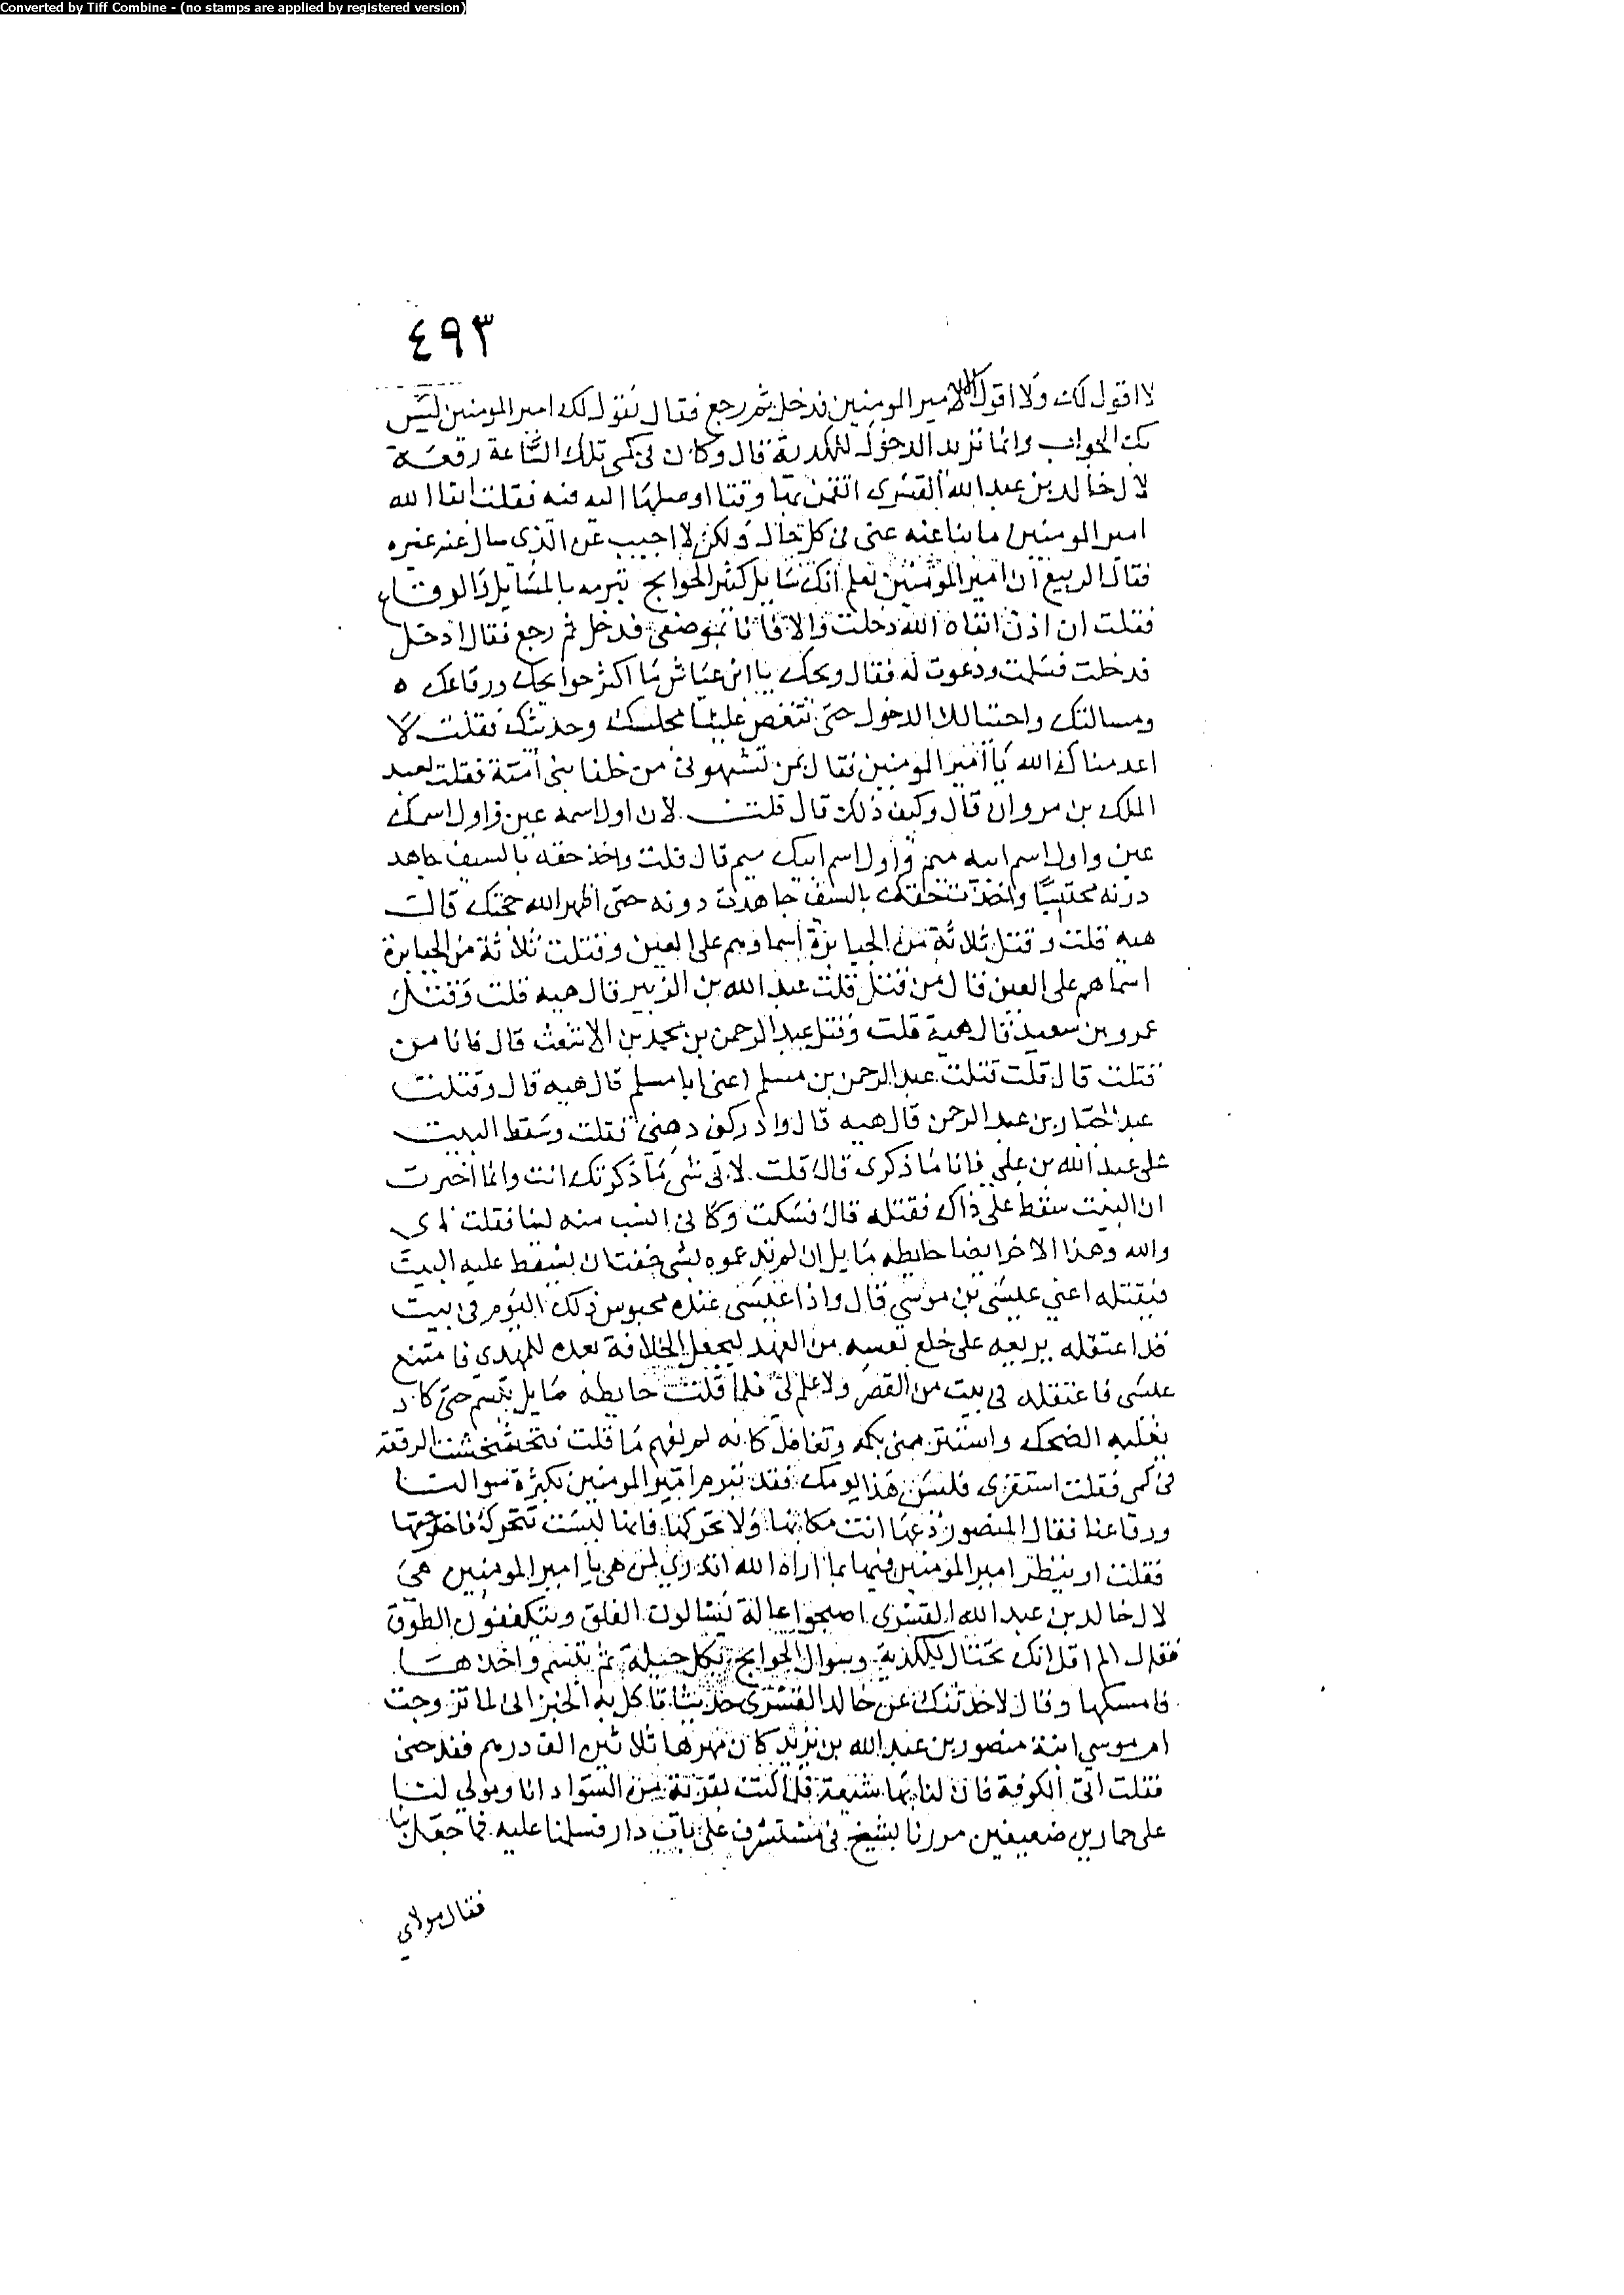 Converted by Tiff Combine - (no stamps are applied by registered version)
٤٩٣
لا اقول لك ولا اقول الا لامير المومنين فدخل ثم رجع فقال يقول لك امير المومنين ليس
بك الجواب وانما تريد الدخول للكدية قال وكان في كمي تلك الساعة رقعة
لال خالد بن عبد الله القسري اتحمن بها وقتا اوصلها اليه فيه فقلت ابقا الله
امير المومنين ما بنا عنه غنى في كل حال ولكن لا اجيب عن الذي سال عنه غيره
فقال الربيع ان امير المومنين يعلم انك سايل كثير الحوايج تبرمه بالمسايل والرقاع
فقلت ان اذن ابقاه الله دخلت والا فانا بموضعي فدخل ثم رجع فقال ادخل
فدخلت فسلمت ودعوت له فقال ويحك يا ابن عياش ما اكثر حوايجك ورقاعك ه
ومسالتك واحتيالك الدخول حتى تنغص علينا مجلسك وحديثك فقلت لا
اعدمناك الله يا امير المومنين فقال بمن تشبهوني من خلفا بني امية فقلت بعبد
الملك بن مروان قال وكيف ذلك قال قلت لان اول اسمه عين واول اسمك
عين واول اسم ابيه ميم واول اسم ابيك ميم قال قلت واخذ حقه بالسيف جاهد
دونه محتسبا واخذت حقك بالسيف جاهدت دونه حتى اظهر الله حجتك قال
هيه قلت وقتل ثلاثة من الجبابرة اسماوهم على العين وقتلت ثلاثة من الجبابرة
اسماهم على العين قال من قتل قلت عبد الله بن الزبير قال هيه قلت وقتل
عمرو بن سعيد قال هيه قلت وقتل عبد الرحمن بن محمد بن الاشعث قال فانا من
قتلت قال قلت قتلت عبد الرحمن بن مسلم اعني ابا مسلم قال هيه قال وقتلت
عبد الجبار بن عبد الرحمن قال هيه قال وادركني ذهني فقلت وسقط البيت
على عبد الله بن علي فانا ما ذكري قال قلت لا في شي ما ذكرتك انت وانما اخبرت
ان البيت سقط على ذاك فقتله قال فسكت وكاني انست منه لينا فقلت اي
والله وهذا الاخر ايضا حايطه مايل ان لم تدعموه بشي خفت ان يسقط عليه البيت
فيقتله اعني عيسى بن موسى قال واذا عيسى عنده محبوس ذلك اليوم في بيت
قد اعتقله يريعه على خلع نفسه من العهد ليجعل الخلافة بعده للمهدي فامتنع
عيسى فاعتقله في بيت من القصر ولا علم لي فلما قلت حايطه مايل تبسم حتى كاد
يغلبه الضحك واستتر مني بكمه وتغافل كانه لم يفهم ما قلت فتخشخشت الرقعة
في كمي فقلت استقري فليس هذا يومك فقد تبرم امير المومنين بكثرة سوالنا
ورقاعنا فقال المنصور دعها انت مكانها ولا تحركها فانها ليست تتحرك فاخرجتها
فقلت او ينظر امير المومنين فيها بما اراه الله اتدري لمن هي يا امير المومنين هي
لال خالد بن عبد الله القسري اصبحوا عالة يسالون الفلق ويتكففون الطوق
فقال الم اقل انك تحتال للكدية وسوال الحوايج بكل حيلة ثم تبسم واخذها
فامسكها وقال لاحدثنك عن خالد القسري حديثا تاكل به الخبز اني لما تزوجت
ام موسى ابنة منصور بن عبد الله بن يزيد كان مهرها ثلاثين الف درهم فقدحني
فقلت اتي الكوفة فان لنا بها شيعة فلما كنت بقرية من السواد انا ومولى لنا
على حمارين ضعيفين مررنا بشيخ في مستشرف على باب دار فسلمنا عليه فما حفل بنا
فقال مولاي